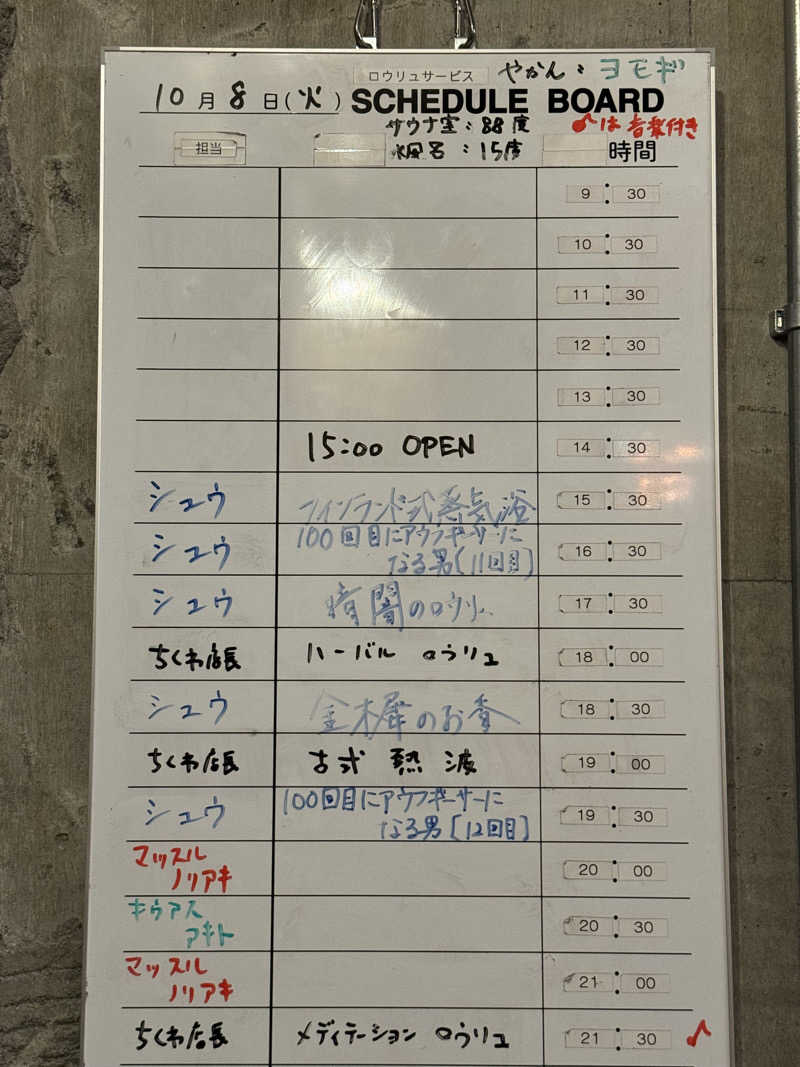 ロウリュサービス やかん：ヨモギ
10月8日(火) SCHEDULE BOARD
サウナ室：88度 ♪は音楽付き
水風呂：15度
担当 時間
9:30
10:30
11:30
12:30
13:30
15:00 OPEN 14:30
シュウ フィンランド式蒸気浴 15:30
シュウ 100回目にアウフギーサーに
なる男[11回目] 16:30
シュウ 暗闇のロウリュ 17:30
ちくわ店長 ハーバル ロウリュ 18:00
シュウ 金木犀のお香 18:30
ちくわ店長 古式 熱波 19:00
シュウ 100回目にアウフギーサーに
なる男[12回目] 19:30
マッスル
ノリアキ 20:00
キウアス
アキト 20:30
マッスル
ノリアキ 21:00
ちくわ店長 メディテーション ロウリュ 21:30 ♪